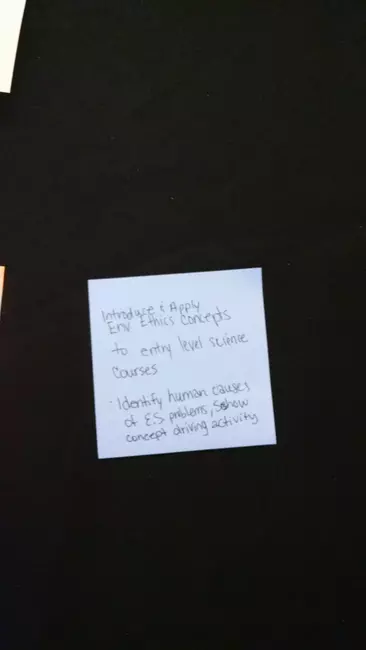 Introduce & Apply
Env Ethics Concepts
to entry level science
courses
· Identify human causes
of E.S. problems, show
concept driving activity